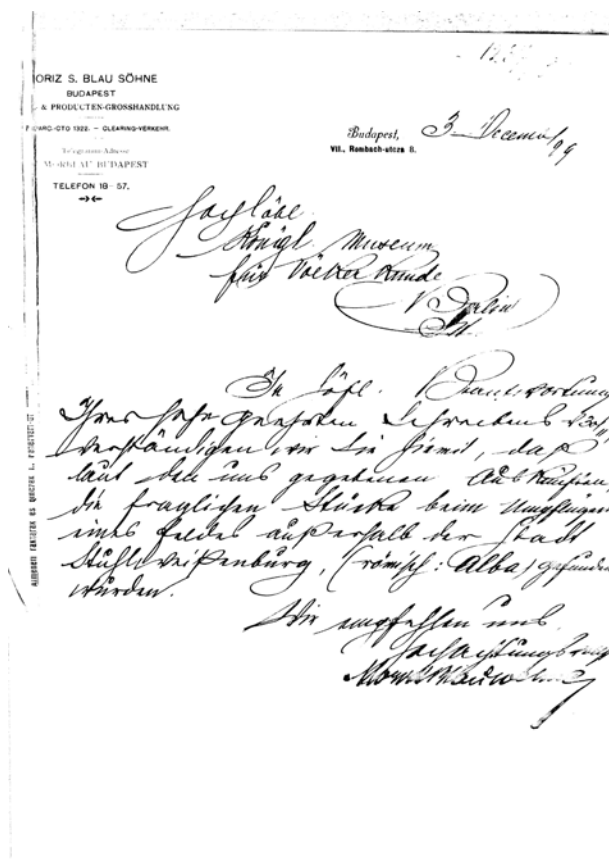 ORIZ S. BLAU SÖHNE
BUDAPEST
& PRODUCTEN-GROSSHANDLUNG
CTO 1922. — CLEARING-VERKEHR.
Telegramm-Adresse
MORBLAU BUDAPEST
TELEFON 18-57.
Budapest, 3. December 99
VII., Rombach-utcza 8.
Hochlöbl.
Königl. Museum
für Völkerkunde
Berlin
In höfl. Beantwortung
Ihres hochgeehrten Schreibens 30/11
verständigen wir Sie hiemit, daß
laut den uns gegebenen Auskünften,
die fraglichen Stücke beim Umpflügen
eines Feldes außerhalb der Stadt
Stuhlweißenburg, (römisch: Alba) gefunden
wurden.
Wir empfehlen uns
hochachtungsvoll